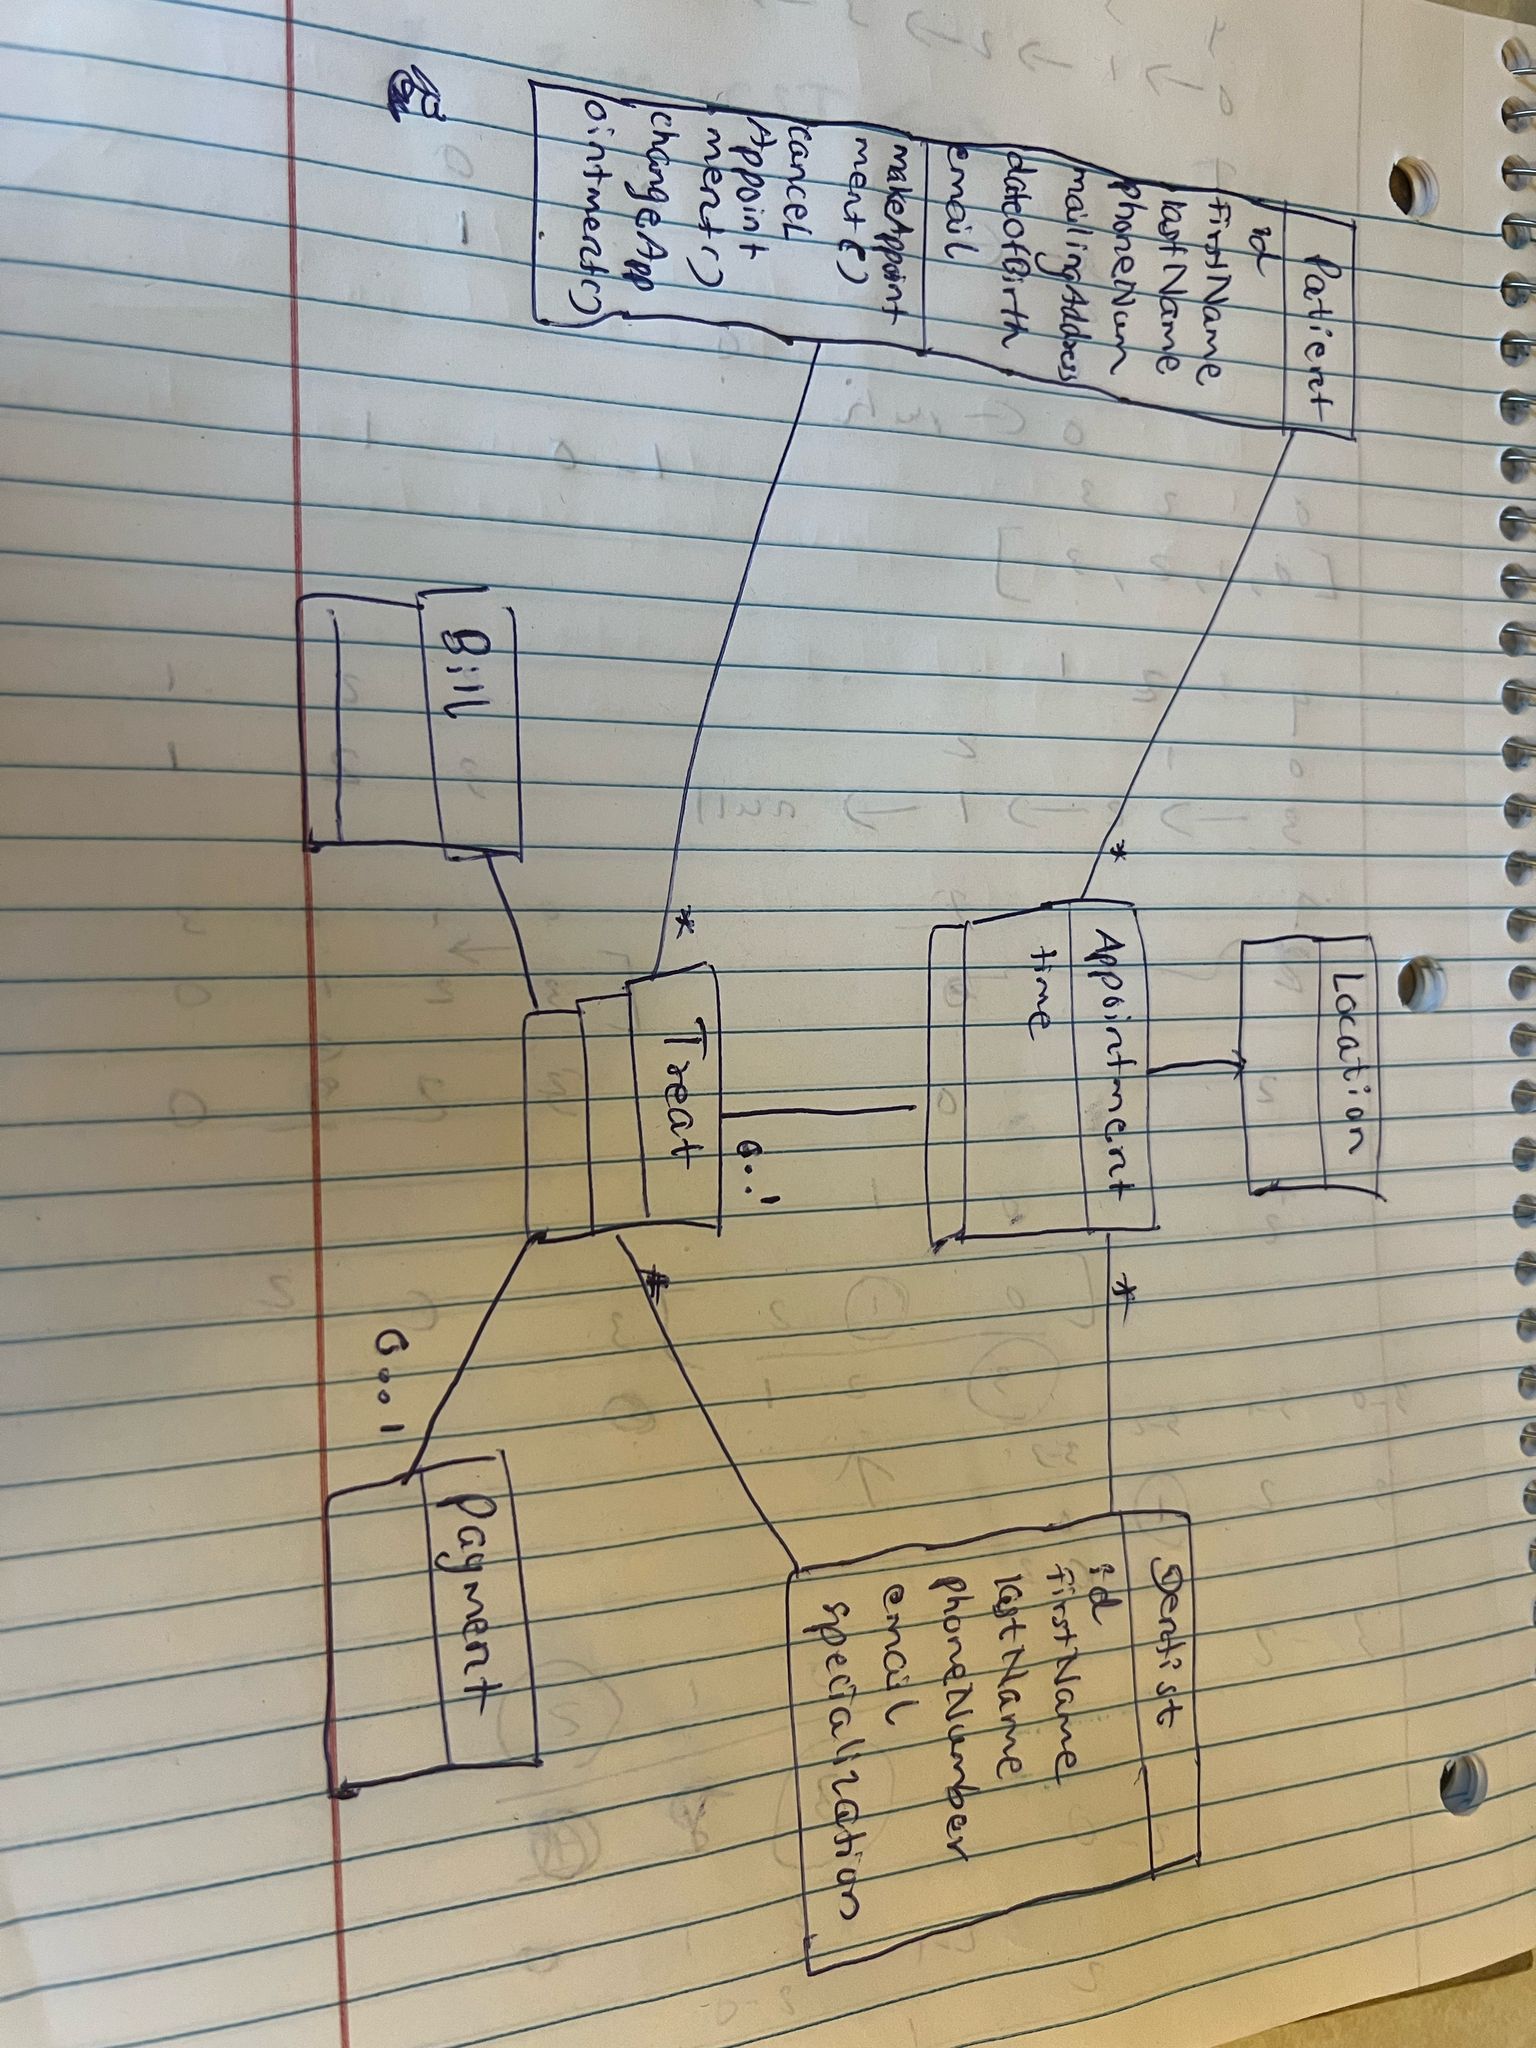 Patient
id
firstName
lastName
phoneNum
mailingAddress
dateofBirth
email
makeAppoint
ment()
cancel
Appoint
ment()
changeApp
ointment()
Location
*
Appointment
time
*
Dentist
id
firstName
lastName
phoneNumber
email
specialization
0..1
*
Treat
*
Bill
0..1
Payment